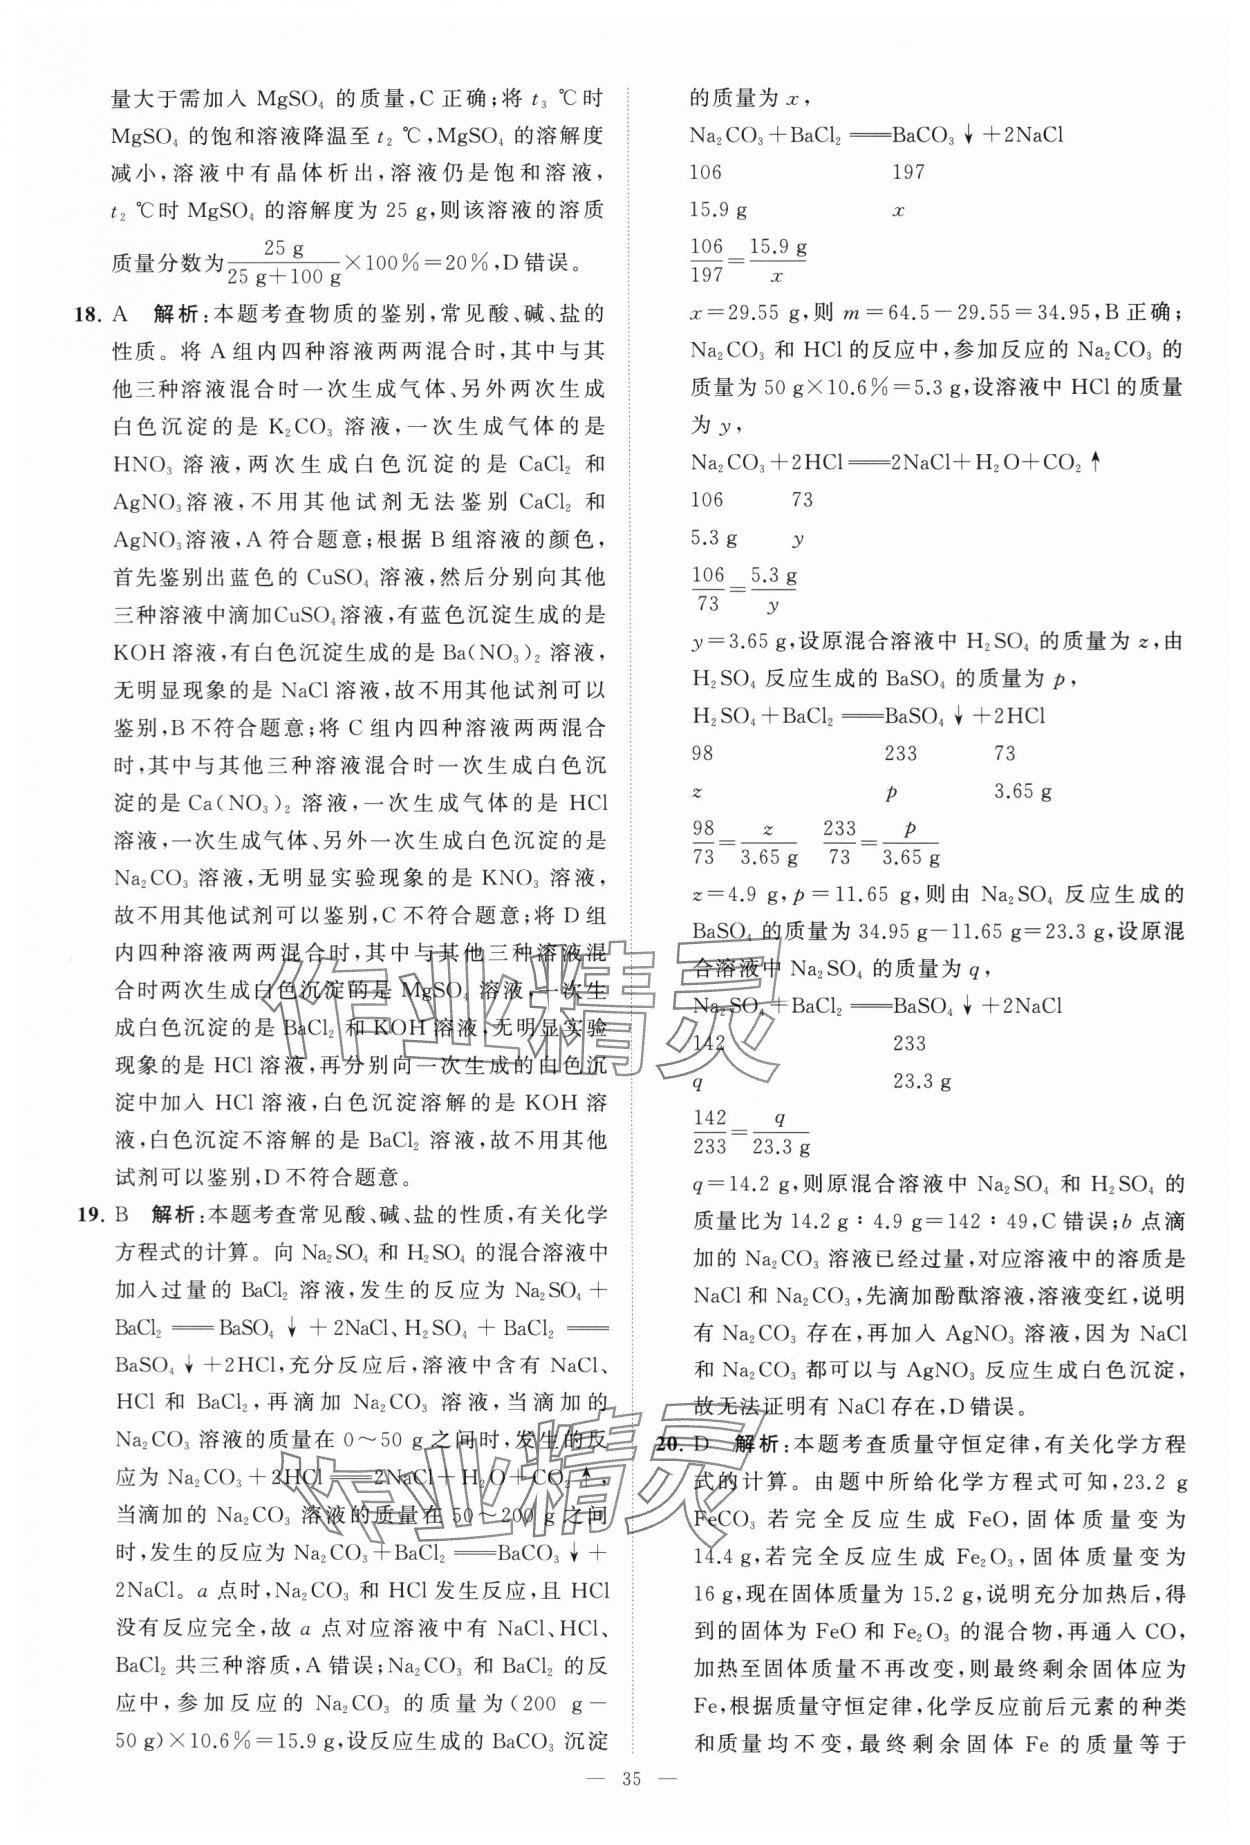 量大于需加入 MgSO₄ 的质量,C 正确;将 t₃ ℃时
MgSO₄ 的饱和溶液降温至 t₂ ℃,MgSO₄ 的溶解度
减小,溶液中有晶体析出,溶液仍是饱和溶液,
t₂ ℃时 MgSO₄ 的溶解度为 25 g,则该溶液的溶质
质量分数为 25 g/(25 g+100 g)×100%=20%,D 错误。
18. A 解析:本题考查物质的鉴别,常见酸、碱、盐的
性质。将 A 组内四种溶液两两混合时,其中与其
他三种溶液混合时一次生成气体、另外两次生成
白色沉淀的是 K₂CO₃ 溶液,一次生成气体的是
HNO₃ 溶液,两次生成白色沉淀的是 CaCl₂ 和
AgNO₃溶液,不用其他试剂无法鉴别 CaCl₂ 和
AgNO₃溶液,A 符合题意;根据 B 组溶液的颜色,
首先鉴别出蓝色的 CuSO₄ 溶液,然后分别向其他
三种溶液中滴加CuSO₄溶液,有蓝色沉淀生成的是
KOH 溶液,有白色沉淀生成的是 Ba(NO₃)₂ 溶液,
无明显现象的是 NaCl 溶液,故不用其他试剂可以
鉴别,B 不符合题意;将 C 组内四种溶液两两混合
时,其中与其他三种溶液混合时一次生成白色沉
淀的是 Ca(NO₃)₂ 溶液,一次生成气体的是 HCl
溶液,一次生成气体、另外一次生成白色沉淀的是
Na₂CO₃ 溶液,无明显实验现象的是 KNO₃ 溶液,
故不用其他试剂可以鉴别,C 不符合题意;将 D 组
内四种溶液两两混合时,其中与其他三种溶液混
合时两次生成白色沉淀的是 MgSO₄ 溶液,一次生
成白色沉淀的是 BaCl₂ 和 KOH 溶液,无明显实验
现象的是 HCl 溶液,再分别向一次生成的白色沉
淀中加入 HCl 溶液,白色沉淀溶解的是 KOH 溶
液,白色沉淀不溶解的是 BaCl₂ 溶液,故不用其他
试剂可以鉴别,D 不符合题意。
19. B 解析:本题考查常见酸、碱、盐的性质,有关化学
方程式的计算。向 Na₂SO₄ 和 H₂SO₄ 的混合溶液中
加入过量的 BaCl₂ 溶液,发生的反应为 Na₂SO₄ +
BaCl₂ ══ BaSO₄↓ + 2NaCl、H₂SO₄ + BaCl₂ ══
BaSO₄↓+2HCl,充分反应后,溶液中含有 NaCl、
HCl 和 BaCl₂,再滴加 Na₂CO₃ 溶液,当滴加的
Na₂CO₃ 溶液的质量在 0～50 g 之间时,发生的反
应为 Na₂CO₃+2HCl══2NaCl+H₂O+CO₂↑,
当滴加的 Na₂CO₃ 溶液的质量在 50～200 g 之间
时,发生的反应为 Na₂CO₃+BaCl₂══BaCO₃↓+
2NaCl。a 点时,Na₂CO₃ 和 HCl 发生反应,且 HCl
没有反应完全,故 a 点对应溶液中有 NaCl、HCl、
BaCl₂ 共三种溶质,A 错误;Na₂CO₃ 和 BaCl₂ 的反
应中,参加反应的 Na₂CO₃ 的质量为(200 g－
50 g)×10.6%=15.9 g,设反应生成的 BaCO₃ 沉淀
的质量为 x,
Na₂CO₃+BaCl₂══BaCO₃↓+2NaCl
106 197
15.9 g x
106/197=15.9 g/x
x=29.55 g,则 m=64.5－29.55=34.95,B 正确;
Na₂CO₃ 和 HCl 的反应中,参加反应的 Na₂CO₃ 的
质量为 50 g×10.6%=5.3 g,设溶液中 HCl 的质量
为 y,
Na₂CO₃+2HCl══2NaCl+H₂O+CO₂↑
106 73
5.3 g y
106/73=5.3 g/y
y=3.65 g,设原混合溶液中 H₂SO₄ 的质量为 z,由
H₂SO₄ 反应生成的 BaSO₄ 的质量为 p,
H₂SO₄+BaCl₂══BaSO₄↓+2HCl
98 233 73
z p 3.65 g
98/73=z/3.65 g 233/73=p/3.65 g
z=4.9 g,p=11.65 g,则由 Na₂SO₄ 反应生成的
BaSO₄ 的质量为 34.95 g－11.65 g=23.3 g,设原混
合溶液中 Na₂SO₄ 的质量为 q,
Na₂SO₄+BaCl₂══BaSO₄↓+2NaCl
142 233
q 23.3 g
142/233=q/23.3 g
q=14.2 g,则原混合溶液中 Na₂SO₄ 和 H₂SO₄ 的
质量比为 14.2 g∶4.9 g=142∶49,C 错误;b 点滴
加的 Na₂CO₃ 溶液已经过量,对应溶液中的溶质是
NaCl 和 Na₂CO₃,先滴加酚酞溶液,溶液变红,说明
有 Na₂CO₃ 存在,再加入 AgNO₃ 溶液,因为 NaCl
和 Na₂CO₃ 都可以与 AgNO₃ 反应生成白色沉淀,
故无法证明有 NaCl 存在,D 错误。
20. D 解析:本题考查质量守恒定律,有关化学方程
式的计算。由题中所给化学方程式可知,23.2 g
FeCO₃ 若完全反应生成 FeO,固体质量变为
14.4 g,若完全反应生成 Fe₂O₃,固体质量变为
16 g,现在固体质量为 15.2 g,说明充分加热后,得
到的固体为 FeO 和 Fe₂O₃ 的混合物,再通入 CO,
加热至固体质量不再改变,则最终剩余固体应为
Fe,根据质量守恒定律,化学反应前后元素的种类
和质量均不变,最终剩余固体 Fe 的质量等于
— 35 —
作业精灵
作业精灵